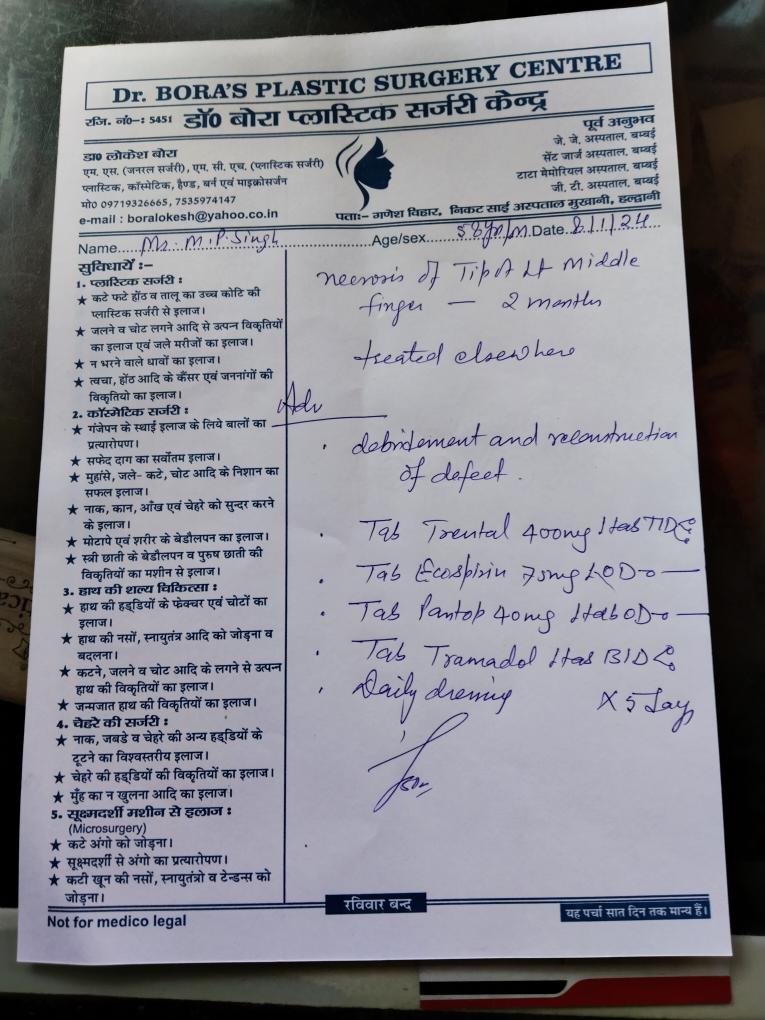 Dr. BORA'S PLASTIC SURGERY CENTRE
रजि. नं०-: 5451 डॉ० बोरा प्लास्टिक सर्जरी केन्द्र
डा० लोकेश बोरा
एम. एस. (जनरल सर्जरी), एम. सी. एच. (प्लास्टिक सर्जरी)
प्लास्टिक, कॉस्मेटिक, हैण्ड, बर्न एवं माइक्रोसर्जन
मो० 09719326665, 7535974147
e-mail : boralokesh@yahoo.co.in
पूर्व अनुभव
जे. जे. अस्पताल. बम्बई
सेंट जार्ज अस्पताल. बम्बई
टाटा मेमोरियल अस्पताल. बम्बई
जी. टी. अस्पताल. बम्बई
पता:- गणेश विहार, निकट साई अस्पताल मुखानी, हल्द्वानी
Name Mr. M.P. Singh Age/sex 58yr/M Date 8/1/24
सुविधायें :-
1. प्लास्टिक सर्जरी :
★ कटे फटे होंठ व तालू का उच्च कोटि की
प्लास्टिक सर्जरी से इलाज।
★ जलने व चोट लगने आदि से उत्पन्न विकृतियों
का इलाज एवं जले मरीजों का इलाज।
★ न भरने वाले घावों का इलाज।
★ त्वचा, होंठ आदि के कैंसर एवं जननांगों की
विकृतियो का इलाज।
2. कॉस्मेटिक सर्जरी :
★ गंजेपन के स्थाई इलाज के लिये बालों का
प्रत्यारोपण।
★ सफेद दाग का सर्वोतम इलाज।
★ मुहांसे, जले- कटे, चोट आदि के निशान का
सफल इलाज।
★ नाक, कान, आँख एवं चेहरे को सुन्दर करने
के इलाज।
★ मोटापे एवं शरीर के बेडौलपन का इलाज।
★ स्त्री छाती के बेडौलपन व पुरुष छाती की
विकृतियों का मशीन से इलाज।
3. हाथ की शल्य चिकित्सा :
★ हाथ की हड्डियों के फेक्चर एवं चोटों का
इलाज।
★ हाथ की नसों, स्नायुतंत्र आदि को जोड़ना व
बदलना।
★ कटने, जलने व चोट आदि के लगने से उत्पन्न
हाथ की विकृतियों का इलाज।
★ जन्मजात हाथ की विकृतियों का इलाज।
4. चेहरे की सर्जरी :
★ नाक, जबडे व चेहरे की अन्य हड्डियों के
टूटने का विश्वस्तरीय इलाज।
★ चेहरे की हड्डियों की विकृतियों का इलाज।
★ मुँह का न खुलना आदि का इलाज।
5. सूक्ष्मदर्शी मशीन से इलाज :
(Microsurgery)
★ कटे अंगो को जोड़ना।
★ सूक्ष्मदर्शी से अंगो का प्रत्यारोपण।
★ कटी खून की नसों, स्नायुतंत्रो व टेन्डन्स को
जोड़ना।
necrosis of Tip of Lt Middle
finger — 2 months
treated elsewhere
Adv
. debridement and reconstruction
of defect.
. Tab Trental 400mg 1tab TID
. Tab Ecospirin 75mg OD
. Tab Pantop 40mg 1tab OD
. Tab Tramadol 1tab BID
. Daily dressing X 5 days
रविवार बन्द
Not for medico legal
यह पर्चा सात दिन तक मान्य हैं।